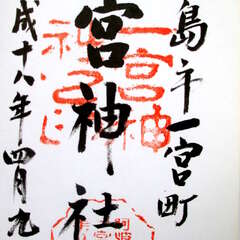 島市一宮町
宮神社
成十八年四月九
一宮神